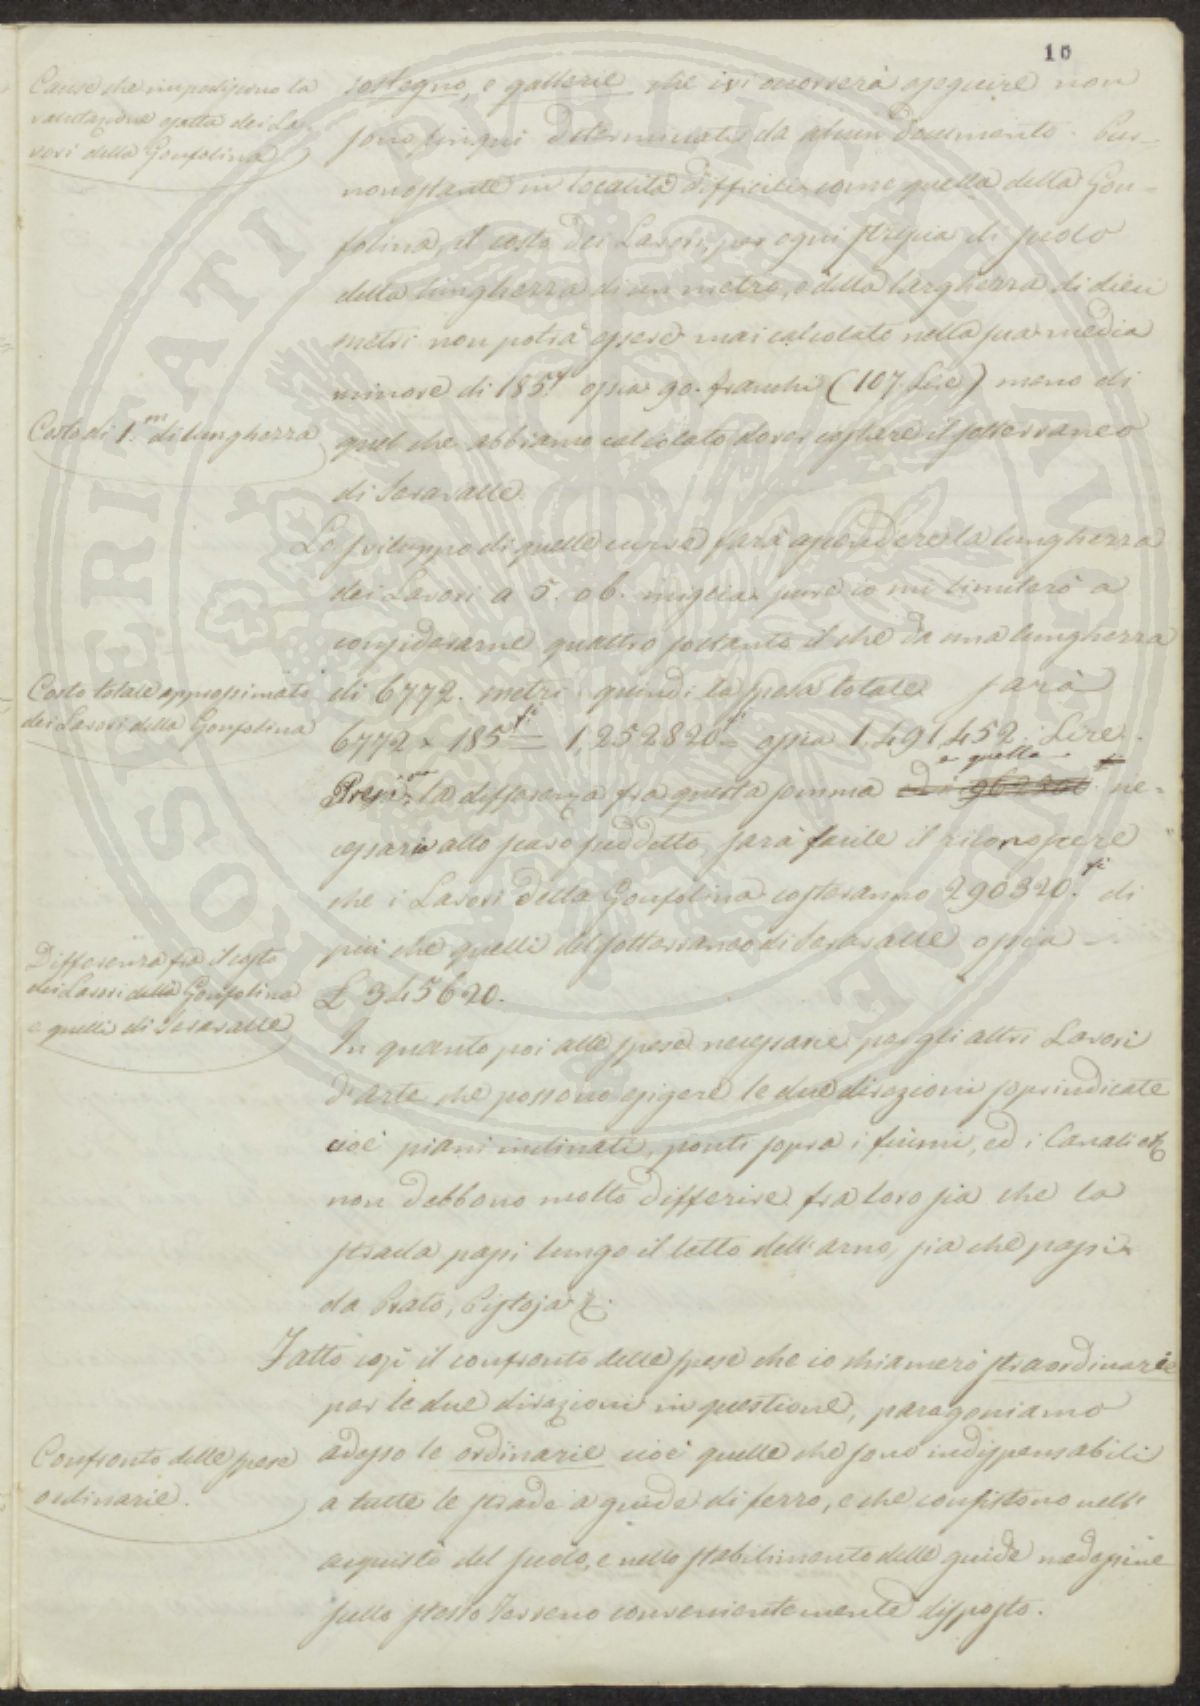 10
Cause che impediscono la
valutazione esatta dei La-
vori della Gonfolina
sostegno, e gallerie che ivi occorrerà eseguire non
sono finqui determinati da alcun documento. Pur-
nonostante in località difficile come quella della Gon-
folina, il costo dei Lavori, per ogni striscia di suolo
della lunghezza di un metro, e della larghezza di dieci
metri non potrà essere mai calcolato nella sua media
minore di 185.fi ossia 90. franchi (107 Lire) meno di
Costo di 1.m di lunghezza
quel che abbiamo calcolato dover costare il sotterraneo
di Seravalle.
Lo sviluppo di quelle curve farà ascendere la lunghezza
dei Lavori a 5. o 6. miglia pure io mi limiterò a
considerarne quattro soltanto il che dà una lunghezza
Costo totale approssimato
dei Lavori della Gonfolina
di 6772. metri quindi la spesa totale sarà
6772 x 185fi = 1,252820fi ossia 1,491,452. Lire.
Presa la differenza fra questa somma e quella ne-
cessaria allo scavo suddetto, sarà facile il riconoscere
che i Lavori della Gonfolina costeranno 290320.fi di
più che quelli del sotterraneo di Seravalle ossia
Differenza fra il costo
dei Lavori della Gonfolina
e quelli di Seravalle
£ 345620.
In quanto poi alle spese necessarie per gli altri Lavori
d'arte che possono esigere le due direzioni soprindicate
cioè piani inclinati, ponti sopra i fiumi, ed i Canali
non debbono molto differire fra loro sia che la
strada passi lungo il letto dell'arno, sia che passi
da Prato, Pistoja
Fatto così il confronto delle spese che io chiamerò straordinarie
per le due direzioni in questione, paragoniamo
Confronto delle spese
ordinarie.
adesso le ordinarie cioè quelle che sono indispensabili
a tutte le strade a guide di ferro, e che consistono nell'
acquisto del suolo, e nello stabilimento delle guide medesime
sullo stesso Terreno convenientemente disposto.